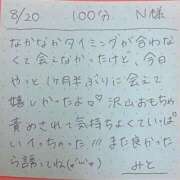 8/20 100分 N様
なかなかタイミングが合わな
くて会えなかったけど、今日
やっと1ヶ月半ぶりに会えて
嬉しかったよ♡沢山おもちゃ
責めされて気持ちよくていっぱ
いイっちゃった!!!また良かった
ら誘ってね(˘ω˘)♪
みと